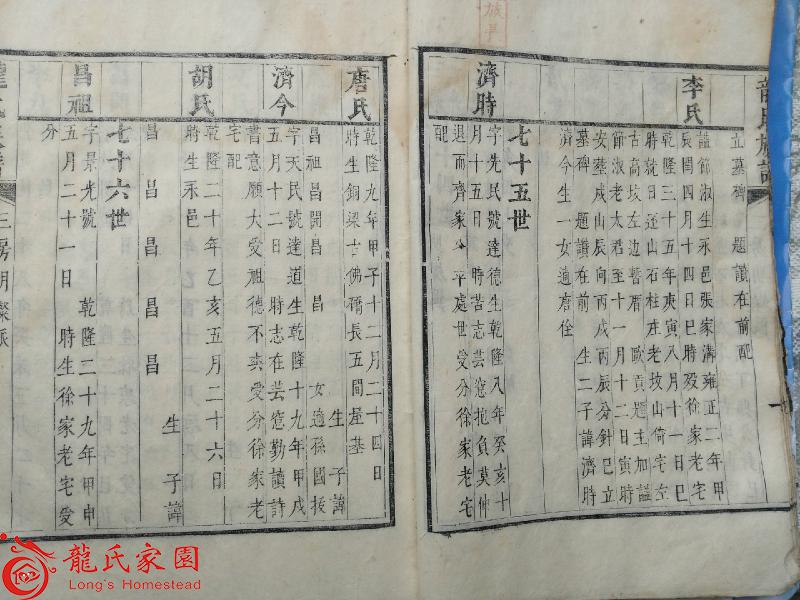 龍氏族譜
立墓碑 題讚在前配
李氏
諡節淑生永邑張家溝雍正二年甲
辰閏四月十四日巳時歿徐家老宅
乾隆三十五年庚寅八月十一日巳
時就日还山石柱庄老坟山倚宅左
古高坟左边暂厝歐貢題主加謚
節淑老太君至十一月十二日寅時
安葬戌山辰向丙戌丙辰分針巳立
墓碑 題讚在前 生二子諱濟時
濟今生一女適唐佺
七十五世
濟時
字先民號達德生乾隆八年癸亥十
月十五日 時苦志芸窓抱負莫伸
退而齊家公平處世受分徐家老宅
配
唐氏
乾隆九年甲子十二月二十四日
時生銅梁古佛 長五間屋基
生 子諱
昌祖昌開昌 昌 女適孫國
濟今
字天民號達道生乾隆十九年甲戌
五月十二日 時志在芸窓勤讀詩
書意願大受祖德不爽受分徐家老
宅配
胡氏
乾隆二十年乙亥五月二十六日
時生永邑
生 子諱
昌 昌 昌 昌 昌
七十六世
昌祖
字景光號 乾隆二十九年甲申
五月二十一日 時生徐家老宅受
分
三房明燦派
龍氏家園
Long's Homestead